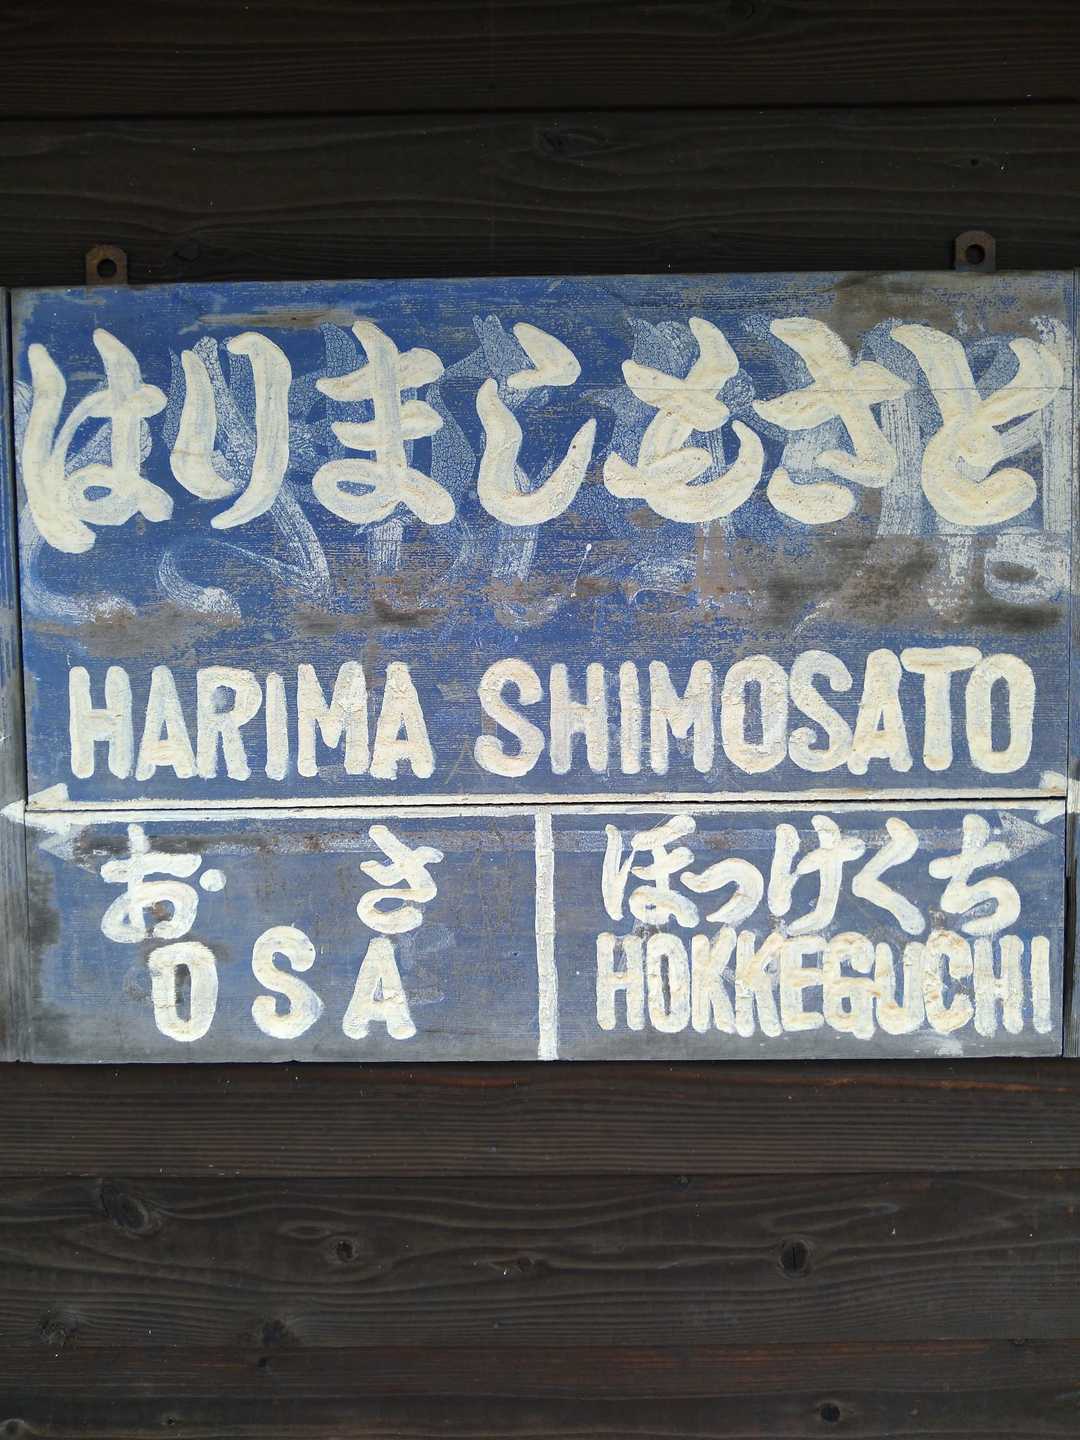 はりましもさと
HARIMA SHIMOSATO
おさ
OSA
ほっけくち
HOKKEGUCHI